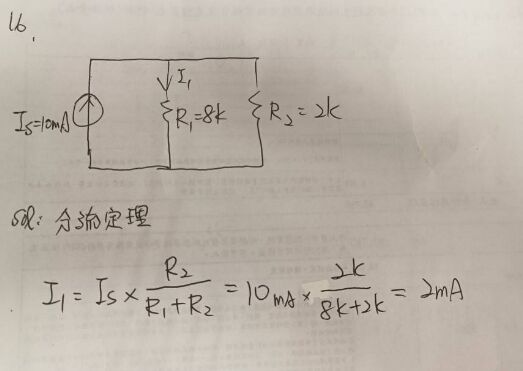 16.
I₁
Is=10mA R₁=8k R₂=2k
sol: 分流定理
I₁ = Is × R₂/(R₁+R₂) = 10mA × 2k/(8k+2k) = 2mA